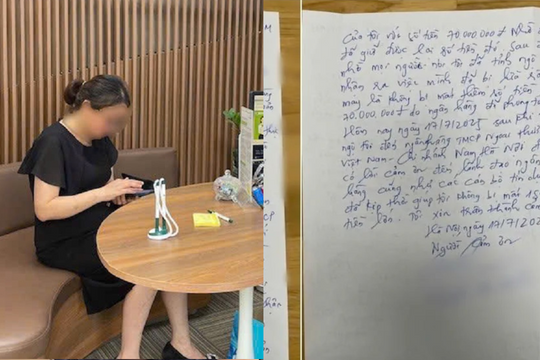 Của tôi với số tiền 70.000.000đ Nhà
đã giữ được lại số tiền đó, sau
nhờ mọi người nói tôi đã tỉnh ngộ
nhận ra việc mình đã bị lừa
may là không bị mất thêm số tiền
70.000.000đ do ngân hàng đã phong
Hôm nay ngày 17/7/2025 sau khi
ngộ tôi đến ngân hàng TMCP Ngoại thư
Việt Nam - Chi nhánh Nam Hà Nội
có lời cảm ơn đến lãnh đạo ngân
hàng cũng như các cán bộ tín dụ
đã kịp thời giúp tôi không bị mất
tiền lớn. Tôi xin trân thành cảm
Hà Nội, ngày 17/7/202
Người cảm ơn